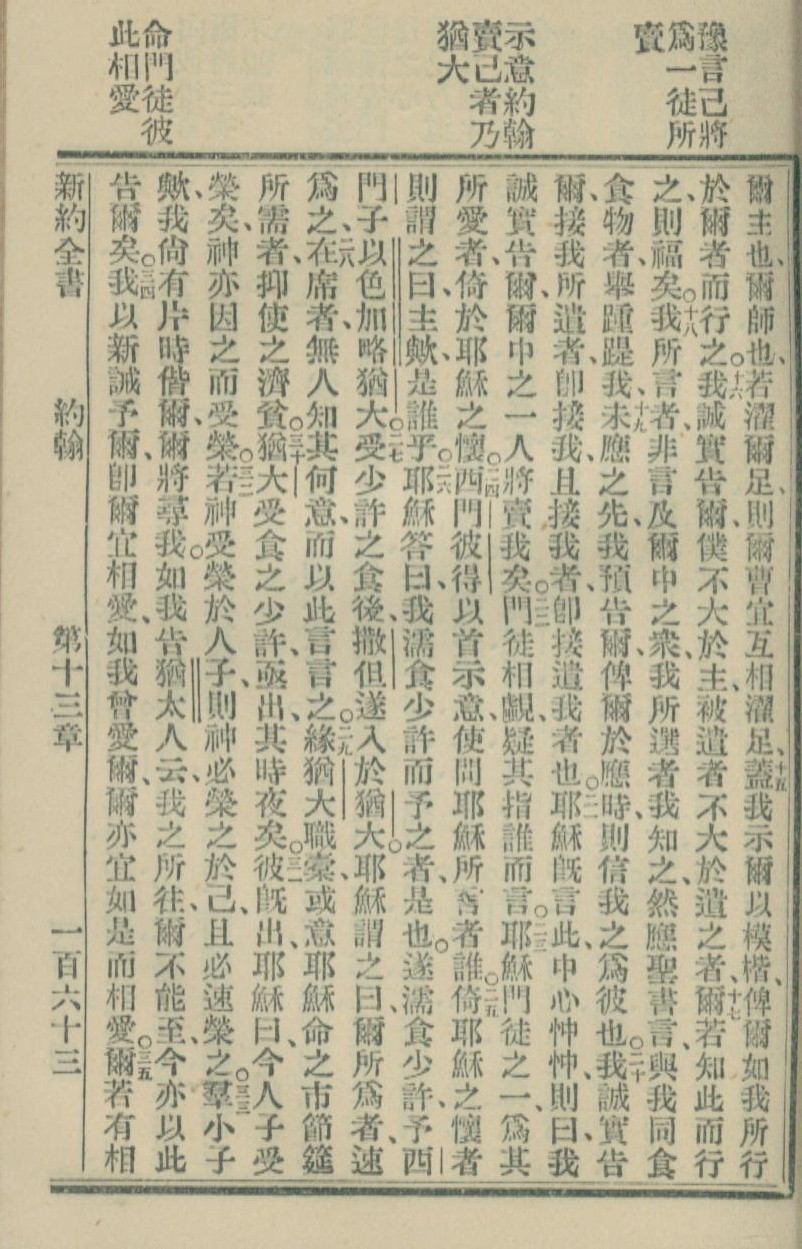 豫言己將
爲一徒所
賣
示意約翰
賣己者乃
猶大
命門徒彼
此相愛
爾主也、爾師也、若濯爾足、則爾曹宜互相濯足、十五蓋我示爾以模楷、俾爾如我所行
於爾者而行之。十六我誠實告爾、僕不大於主、被遣者不大於遣之者、十七爾若知此而行
之、則福矣。十八我所言者、非言及爾中之衆、我所選者、我知之、然應聖書言、與我同食
食物者、舉踵踶我、十九未應之先、我預告爾、俾爾於應時、則信我之爲彼也。二十我誠實告
爾、接我所遣者、卽接我、且接我者、卽接遣我者也。二一耶穌旣言此、中心忡忡、則曰、我
誠實告爾、爾中之一人將賣我矣。二二門徒相觀、疑其指誰而言。二三耶穌門徒之一、爲其
所愛者、倚於耶穌之懷。二四西門彼得以首示意、使問耶穌所言者誰。二五倚耶穌之懷者
則謂之曰、主歟、是誰乎。二六耶穌答曰、我濡食少許而予之者、是也。遂濡食少許、予西
門子以色加略猶大。二七受少許之食後、撒但遂入於猶大。耶穌謂之曰、爾所爲者、速
爲之、二八在席者、無人知其何意、而以此言言之。二九緣猶大職橐、或意耶穌命之市節筵
所需者、抑使之濟貧。三十猶大受食之少許、亟出、其時夜矣。三一彼旣出、耶穌曰、今人子受
榮矣、神亦因之而受榮。三二若神受榮於人子、則神必榮之於己、且必速榮之。三三羣小子
歟、我尙有片時偕爾、爾將尋我。如我告猶太人云、我之所往、爾不能至、今亦以此
告爾矣。三四我以新誡予爾、卽爾宜相愛、如我曾愛爾、爾亦宜如是而相愛。三五爾若有相
新約全書　約翰　第十三章　一百六十三